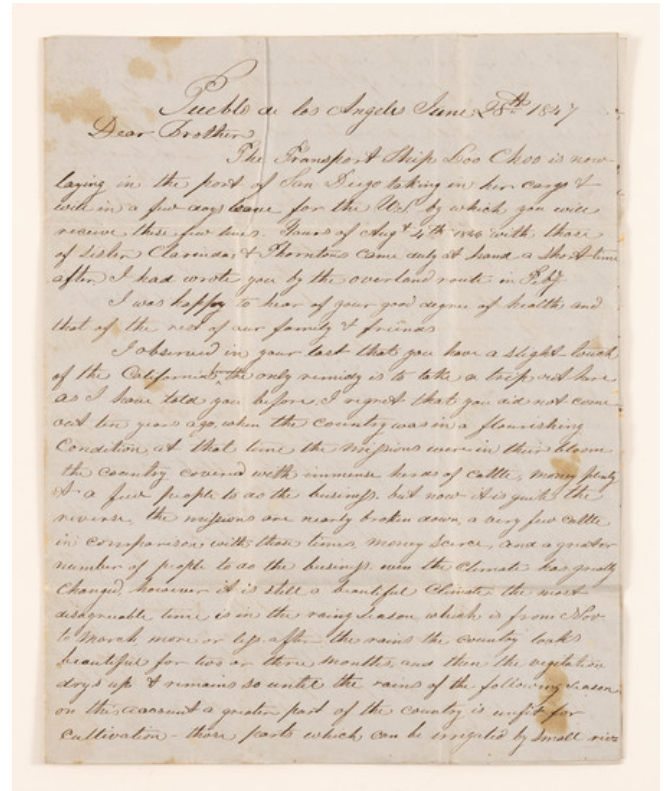 Pueblo de los Angeles June 28th 1847
Dear Brother
The Transport Ship Loo Choo is now
laying in the port of San Diego taking in her cargo &
will in a few days leave for the U.S. by which you will
receive these few lines. Yours of Augt 4th 1846 with those
of sister Clarinda & Thorntons came duly at hand a short time
after I had wrote you by the overland route in Feby
I was happy to hear of your good degree of health and
that of the rest of our family & friends
I observed in your last that you have a slight touch
of the California the only remidy is to take a trip out here
as I have told you before, I regret that you did not come
out ten years ago, when the country was in a flourishing
Condition at that time the missions were in their bloom
the country covered with immense herds of cattle, money plenty
& a few people to do the business, but now it is quite the
reverse, the missions are nearly broken down, a very few cattle
in comparison with those times, money scerce, and a greater
number of people to do the business. even the Climate has greatly
Changed, however it is still a beautiful Climate the most
disagreeable time is in the rainy season which is from Nov.
to March, more or less, after the rains the country looks
beautiful for two or three months, and then the vegitation
drys up & remains so until the rains of the following season
on this account a greater part of the country is unfit for
cultivation - those parts which can be irrigated by small